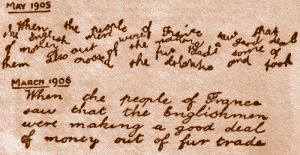 MAY 1905
When the people of France saw that
the English were making a good deal
of money out of the fur trade some of
them also crossed the and took
MARCH 1906
When the people of France
saw that the Englishmen
were making a good deal
of money out of fur trade